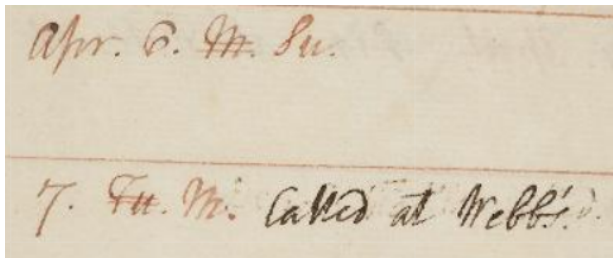 Apr. 6. M. Su.
7. Tu. M. Called at Webb's.